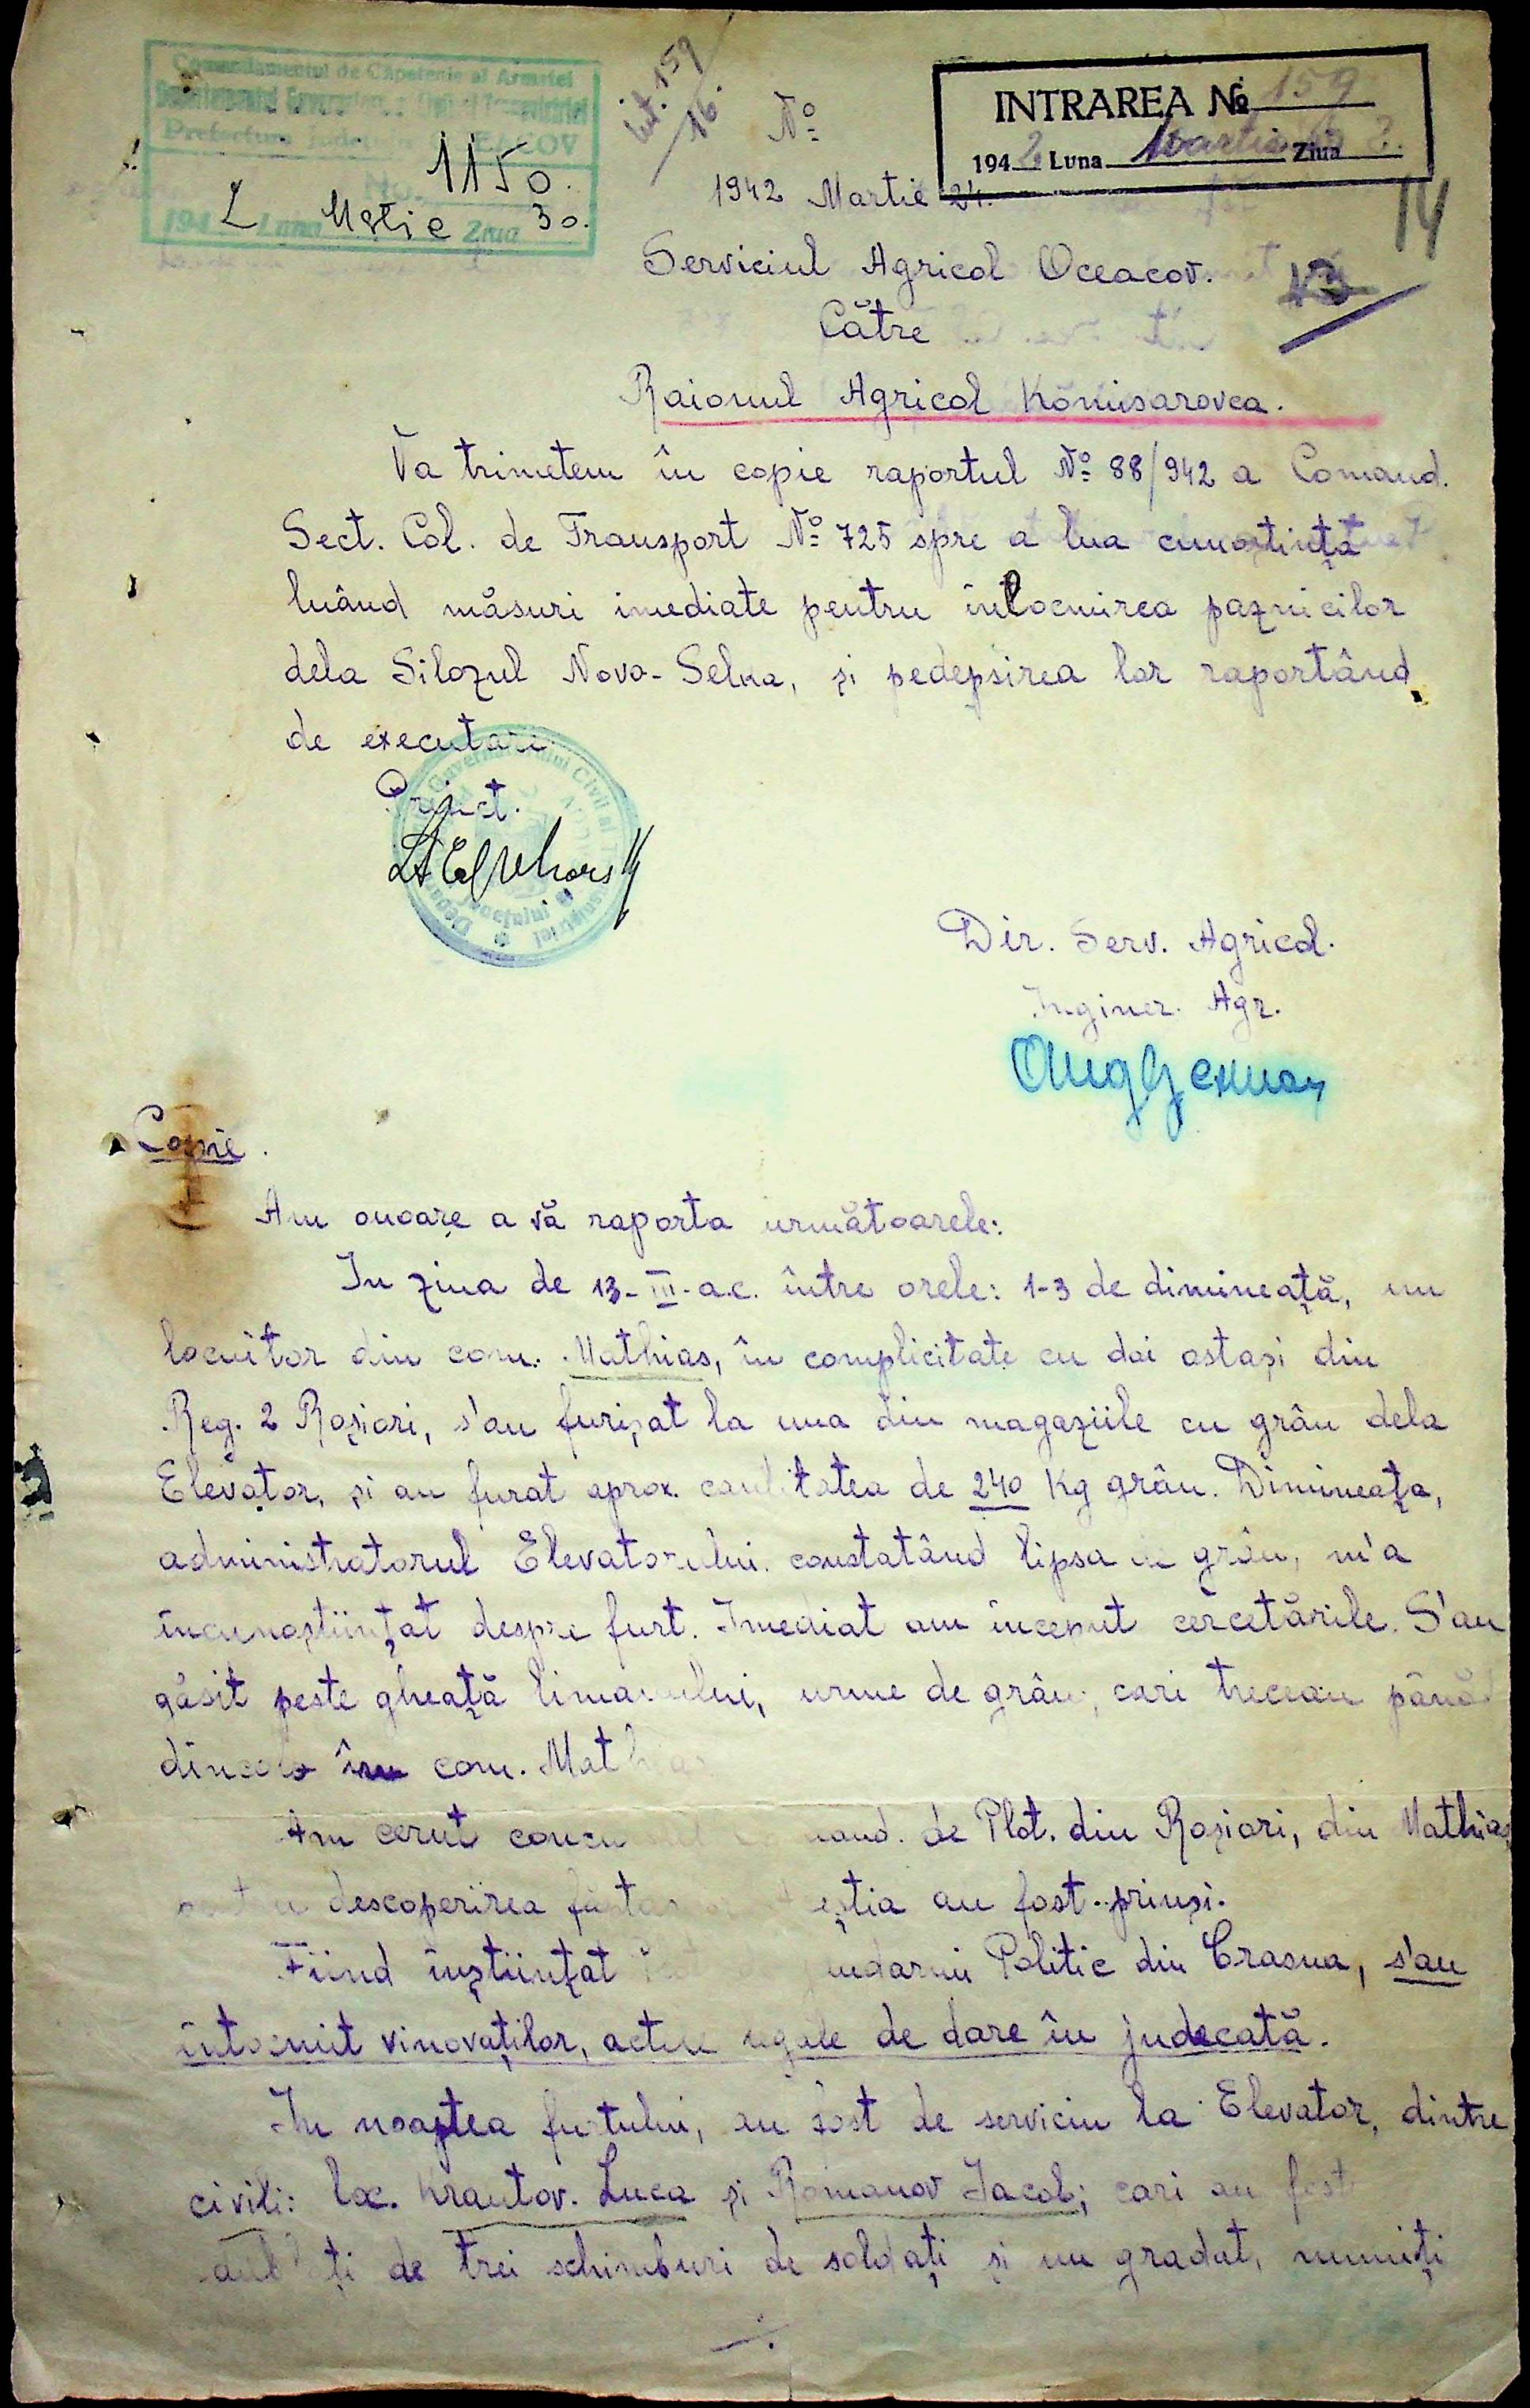 Comandamentul de Căpetenie al Armatei
Prefectura Județului
No. 1150.
194 2 Luna Martie Ziua 30.
159
16.
No
INTRAREA No 159
194 2 Luna Martie Ziua
1942 Martie 24.
14
Serviciul Agricol Oceacov.
13
Către
Raionul Agricol Komisarovca.
Va trimetem în copie raportul No 88/942 a Comand.
Sect. Col. de Transport No 725 spre a lua cunoștință
luând măsuri imediate pentru înlocuirea paznicilor
dela Silozul Novo-Selka, și pedepsirea lor raportând
de executare.
Prefect.
Dir. Serv. Agricol.
Inginer. Agr.
Copie.
Am onoare a vă raporta următoarele:
In ziua de 13-III-a.c. între orele: 1-3 de dimineață, un
locuitor din com. Mathias, în complicitate cu doi ostași din
Reg. 2 Roșiori, s'au furișat la una din magaziile cu grâu dela
Elevator, și au furat aprox. cantitatea de 240 Kg grâu. Dimineața,
administratorul Elevatorului constatând lipsa de grâu, m'a
încunoștiințat despre furt. Imediat am început cercetările. S'au
găsit peste gheață limanului, urme de grâu, cari treceau până
dincolo în com. Mathias
Am cerut de Plot. din Roșiori, din Mathias,
descoperirea au fost prinși.
Fiind înștiințat Politic din Crasna, s'au
întocmit vinovaților, actele legale de dare în judecată.
In noaptea furtului, au fost de serviciu la Elevator, dintre
civili: loc. Krautov. Luca și Romanov Iacob; cari au fost
de trei schimburi de soldați și un gradat, numiți
./.